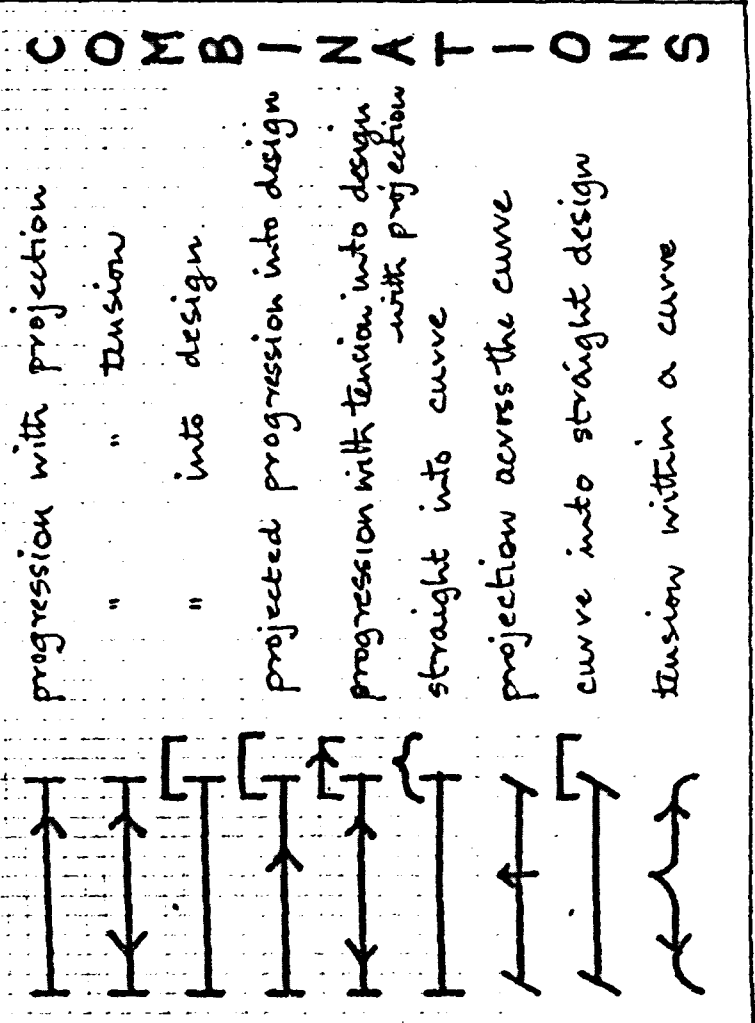 COMBINATIONS
progression with projection
" " tension
" into design
projected progression into design
progression with tension into design
with projection
straight into curve
projection across the curve
curve into straight design
tension within a curve